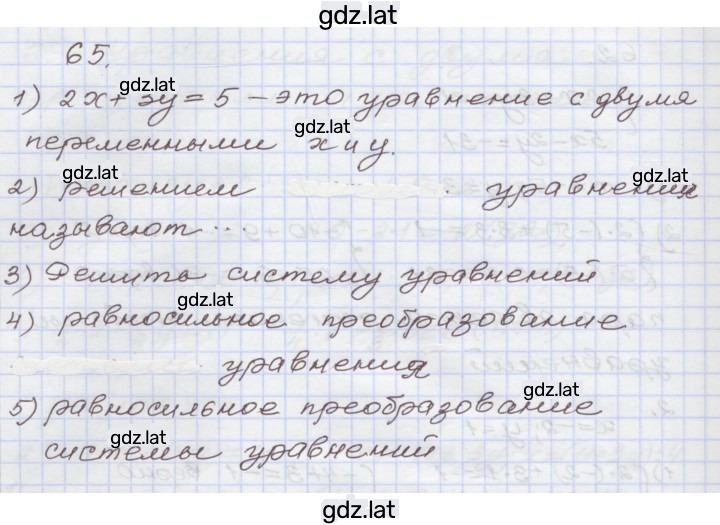 gdz.lat
65.
gdz.lat
1) 2x + 3y = 5 – это уравнение с двумя
gdz.lat
переменными x и y.
gdz.lat
2) решением уравнения
называют ...
3) Решить систему уравнений
gdz.lat
4) равносильное преобразование
уравнения
gdz.lat
5) равносильное преобразование
gdz.lat
системы уравнений
gdz.lat